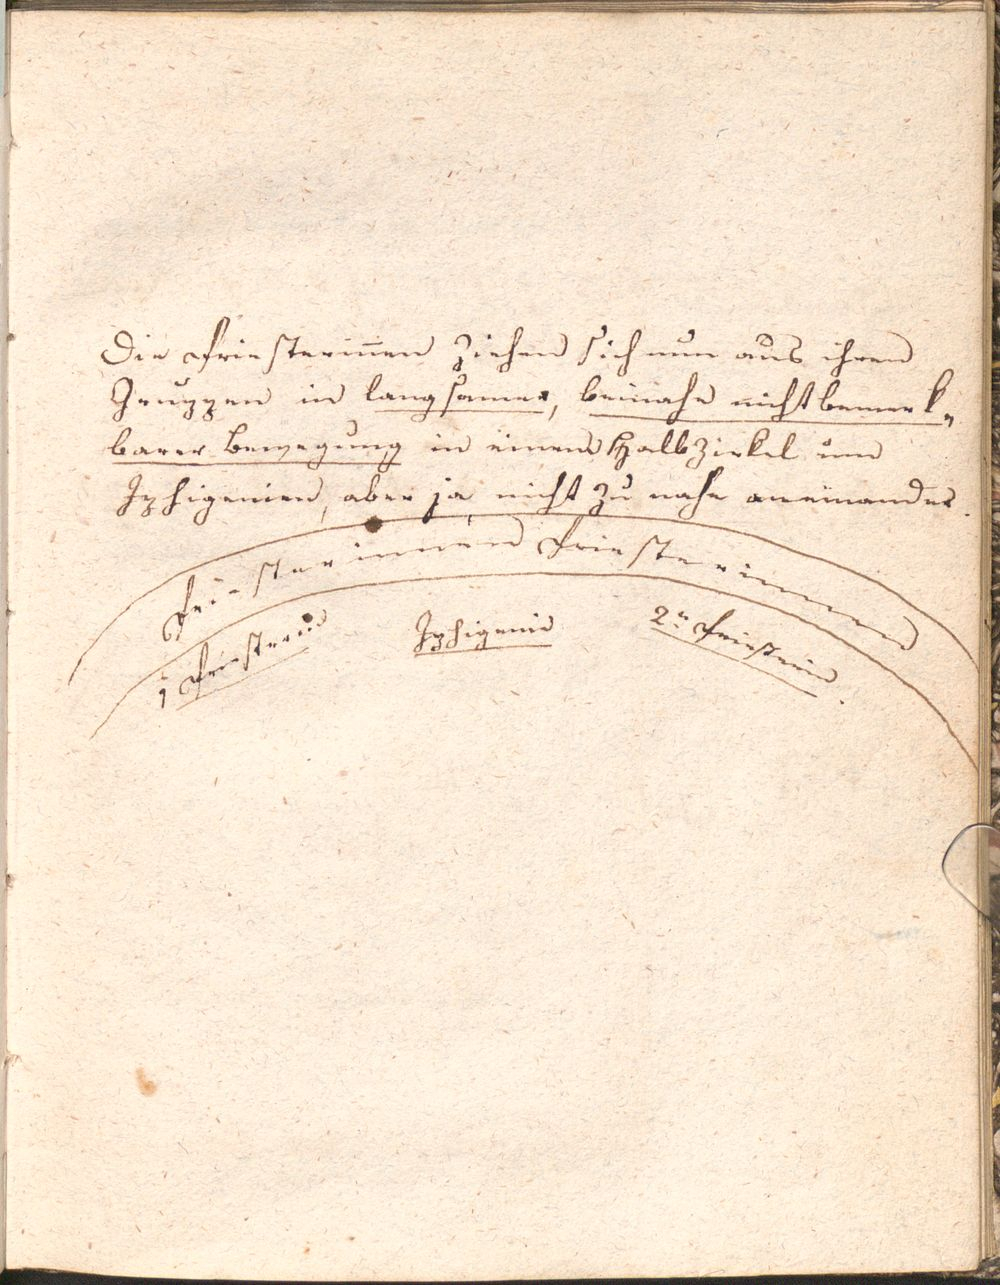 Die Priesterinnen ziehen sich nun aus ihren
Gruppen in langsamer, beinahe nichtbemerk„
barer Bewegung in einen Halbzirkel um
Iphigenien, aber ja nicht zu nahe aneinander.
Priesterinnen Priesterinnen
1 Priesterin
Iphigenie
2te Priesterin.